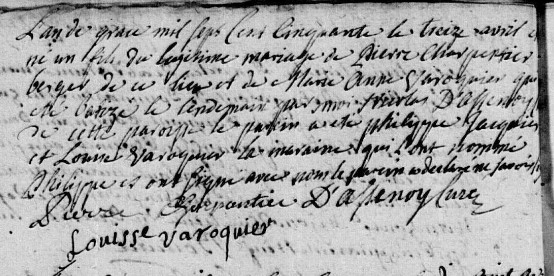 L'an de grace mil sept cens cinquante le treize avril e
né un fils du legitime mariage de Pierre Charpentier
berger de ce lieu et de Marie Anne Varoquier qui
eté batizé le lendemain par moi Nicolas D'Assenoy
de cette paroisse le parein a eté philippe Jacquier
et Louise Varoquier la maraine qui l'ont nommé
Philippe et ont signé avec nous le parein a declaré ne savoir
Pierre Charpentier D'assenoy Curé
Louisse varoquier